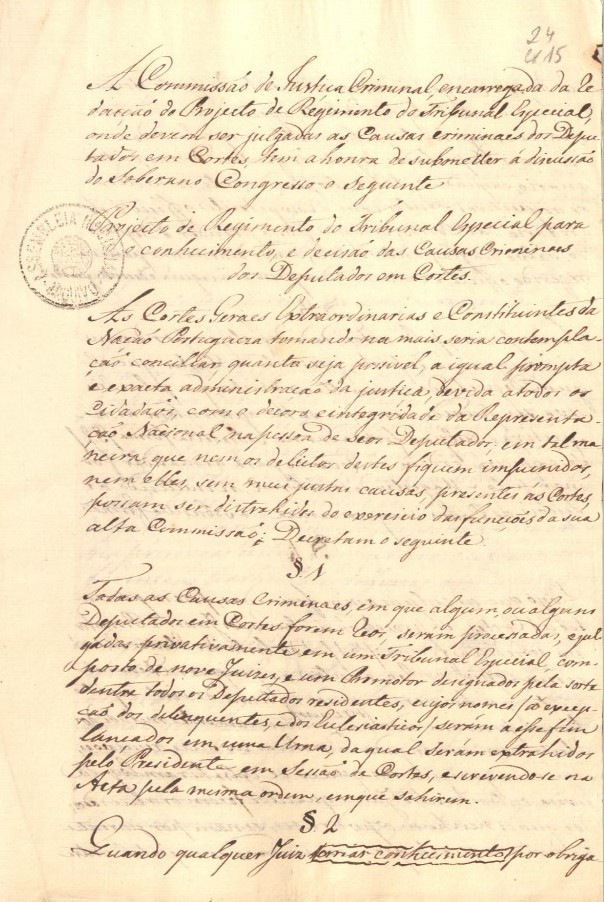 24
cx 15
A Commissão de Justiça Criminal, encarregada da re
dacção do Projecto de Regimento do Tribunal Especial,
onde devem ser julgadas as Causas criminaes dos Depu-
tados em Cortes, tem a honra de submetter á discussão
do Soberano Congresso o seguinte
Projecto de Regimento do Tribunal Especial para
o conhecimento, e decisão das Causas Criminaes
dos Deputados em Cortes.
As Cortes Geraes Extraordinarias e Constituintes da
Nação Portugueza tomando na mais seria contempla-
ção conciliar, quanto seja possivel, a igual, prompta
e exacta administração da justiça, devida a todos os
Cidadãos, com o decoro e integridade da Representa-
ção Nacional na pessoa de seos Deputados, em tal ma
neira, que nem os delictos destes fiquem impunidos,
nem elles, sem mui justas causas, presentes ás Cortes,
possam ser distrahidos do exercicio das funções da sua
alta Commissão; Decretam o seguinte.
§ 1
Todas as Causas Criminaes, em que algum, ou alguns
Deputados em Cortes forem Reos, seram processadas, e jul
gadas privativamente em um Tribunal Especial com-
posto de nove Juizes, e um Promotor designados pela sorte
dentre todos os Deputados residentes, cujos nomes (á excep
ção dos delinquentes, e dos Ecclesiasticos) serám a esse fim
lançados em uma Urna, da qual serám extrahidos
pelo Presidente em Sessão de Cortes, escrevendo-se na
Acta pela mesma ordem, em que sahirem.
§ 2
Quando qualquer Juiz tomar conhecimento por obriga